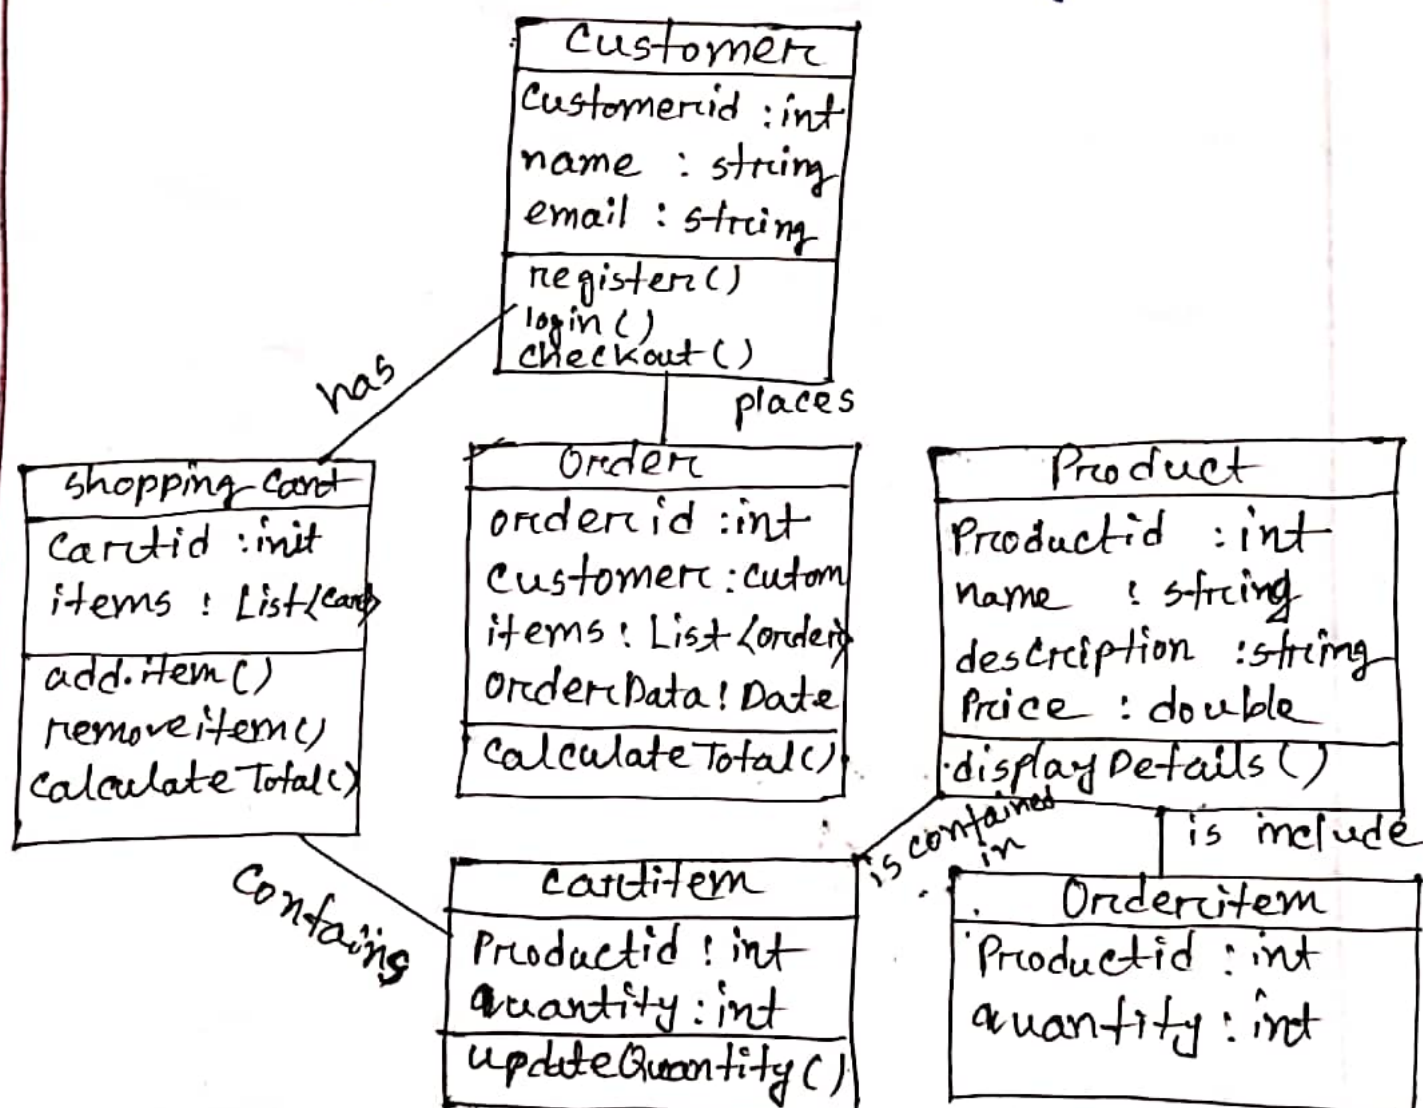 Customer
Customerid : int
name : string
email : string
register()
login()
checkout()
has
places
shopping Cart
Cartid : init
items : List<Cart>
add.item()
removeitem()
calculateTotal()
Order
orderid : int
Customer : Cutom
items : List<order>
OrderData : Date
CalculateTotal()
Product
Productid : int
name : string
description : string
Price : double
displayDetails()
is contained
in
is include
Contains
cartitem
Productid : int
quantity : int
updateQuantity()
Orderitem
Productid : int
quantity : int